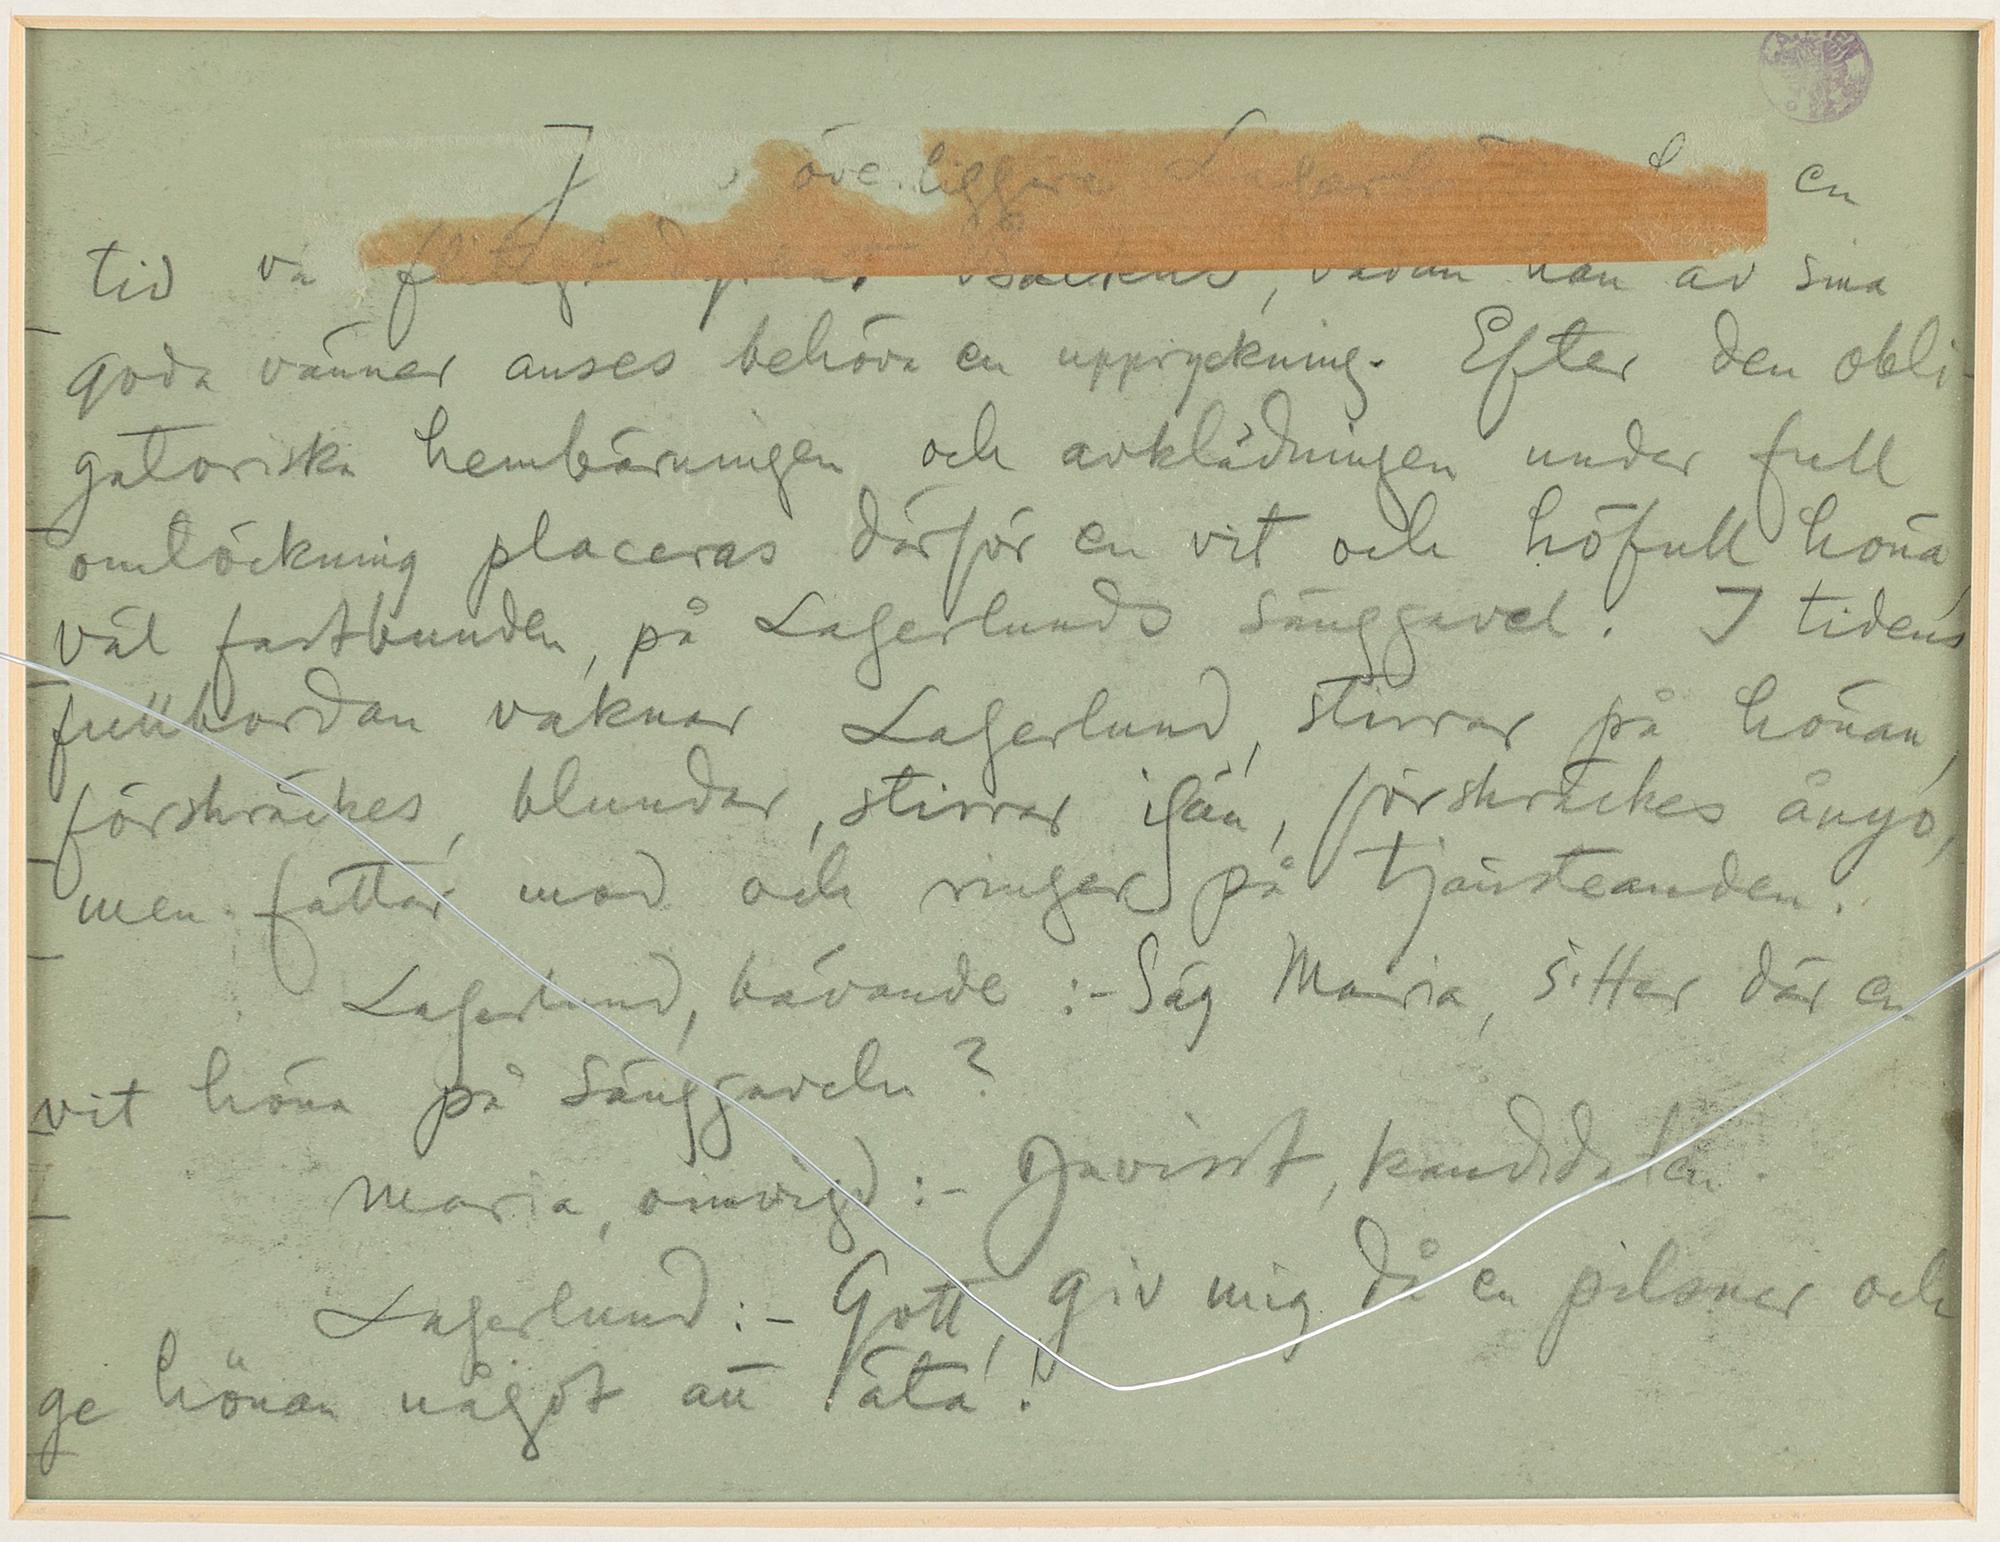 överliggare en
tid va Backus, vadan han av sina
goda vänner anses behöva en uppryckning. Efter den obli-
gatoriska hembärningen och avklädningen under full
omtöckning placeras därför en vit och höfull höna
väl fastbunden, på Lagerlunds sänggavel. I tidens
fullbordan vaknar Lagerlund, stirrar på hönan,
förskräckes, blundar, stirrar igän, förskräckes ånyo,
men fattar mod och ringer på tjänsteanden.
Lagerlund, bävande :- Säg Maria, sitter där en
vit höna på sänggaveln?
Maria, oinvigd :- Javisst, kandidaten.
Lagerlund :- Gott, giv mig då en pilsner och
ge hönan något att äta!